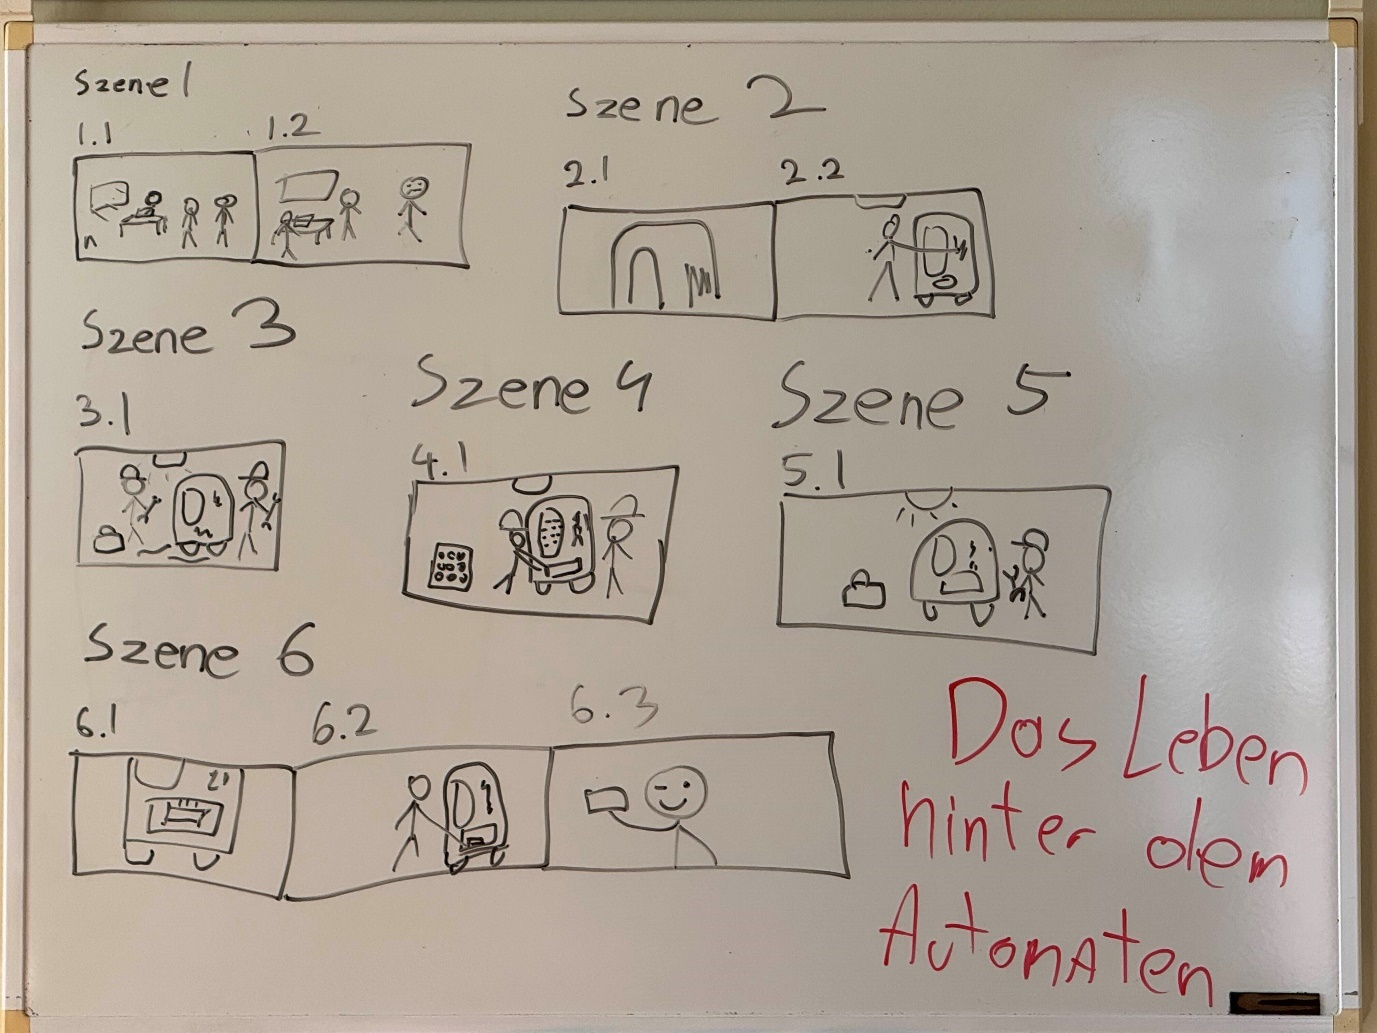 Szene 1
1.1
1.2
Szene 2
2.1
2.2
Szene 3
3.1
Szene 4
4.1
Szene 5
5.1
Szene 6
6.1
6.2
6.3
Das Leben
hinter dem
Automaten